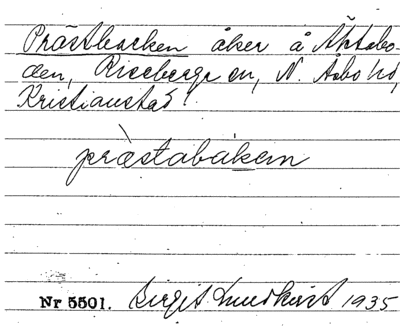 Prästbacken åker å Äptabo-
den, Riseberga sn, N. Åsbo hd,
Kristianstad
prästabakem
Nr 5501. Birgit Lundkvist 1935